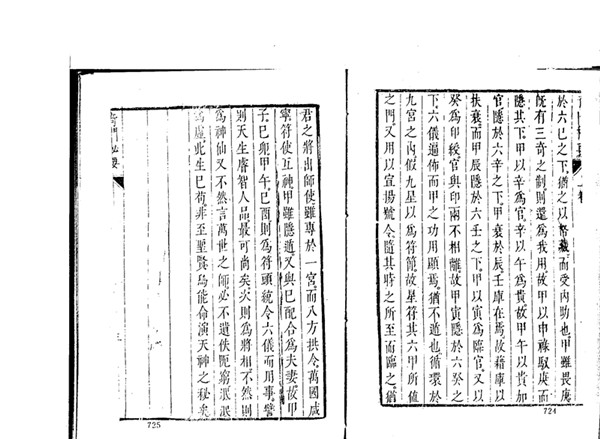 於六己之下猶之以帑藏而受內助也甲雖畏庚
既有三奇之制則還為我用故甲以申祿馭庚而
隱其下甲以辛為官辛以午為貴故甲午以貴加
官隱於六辛之下甲衰於辰壬庫在焉故藉庫以
扶衰而甲辰隱於六壬之下甲以寅為臨官又以
癸為印綬官與印兩不相離故甲寅隱於六癸之
下六儀遍佈而甲之功用顯焉猶不遁也循環於
九宮之內假九星以為符節故星符其六甲所值
之門又用以宣揚號令隨其時之所至而臨之猶
724
君之將出師使雖專於一宮而八方拱令萬國咸
寧符使互神甲雖隱遁又與己配合為夫妻故甲
子己卯甲午己酉則為符頭統令六儀而用事譬
則天生睿智人品最可尚矣夫則為將相不則
為神仙又不然言萬世之師必不遺佚阨窮泯泯
為虛此生已苟非至聖賢烏能命演天神之秘奧
三
725